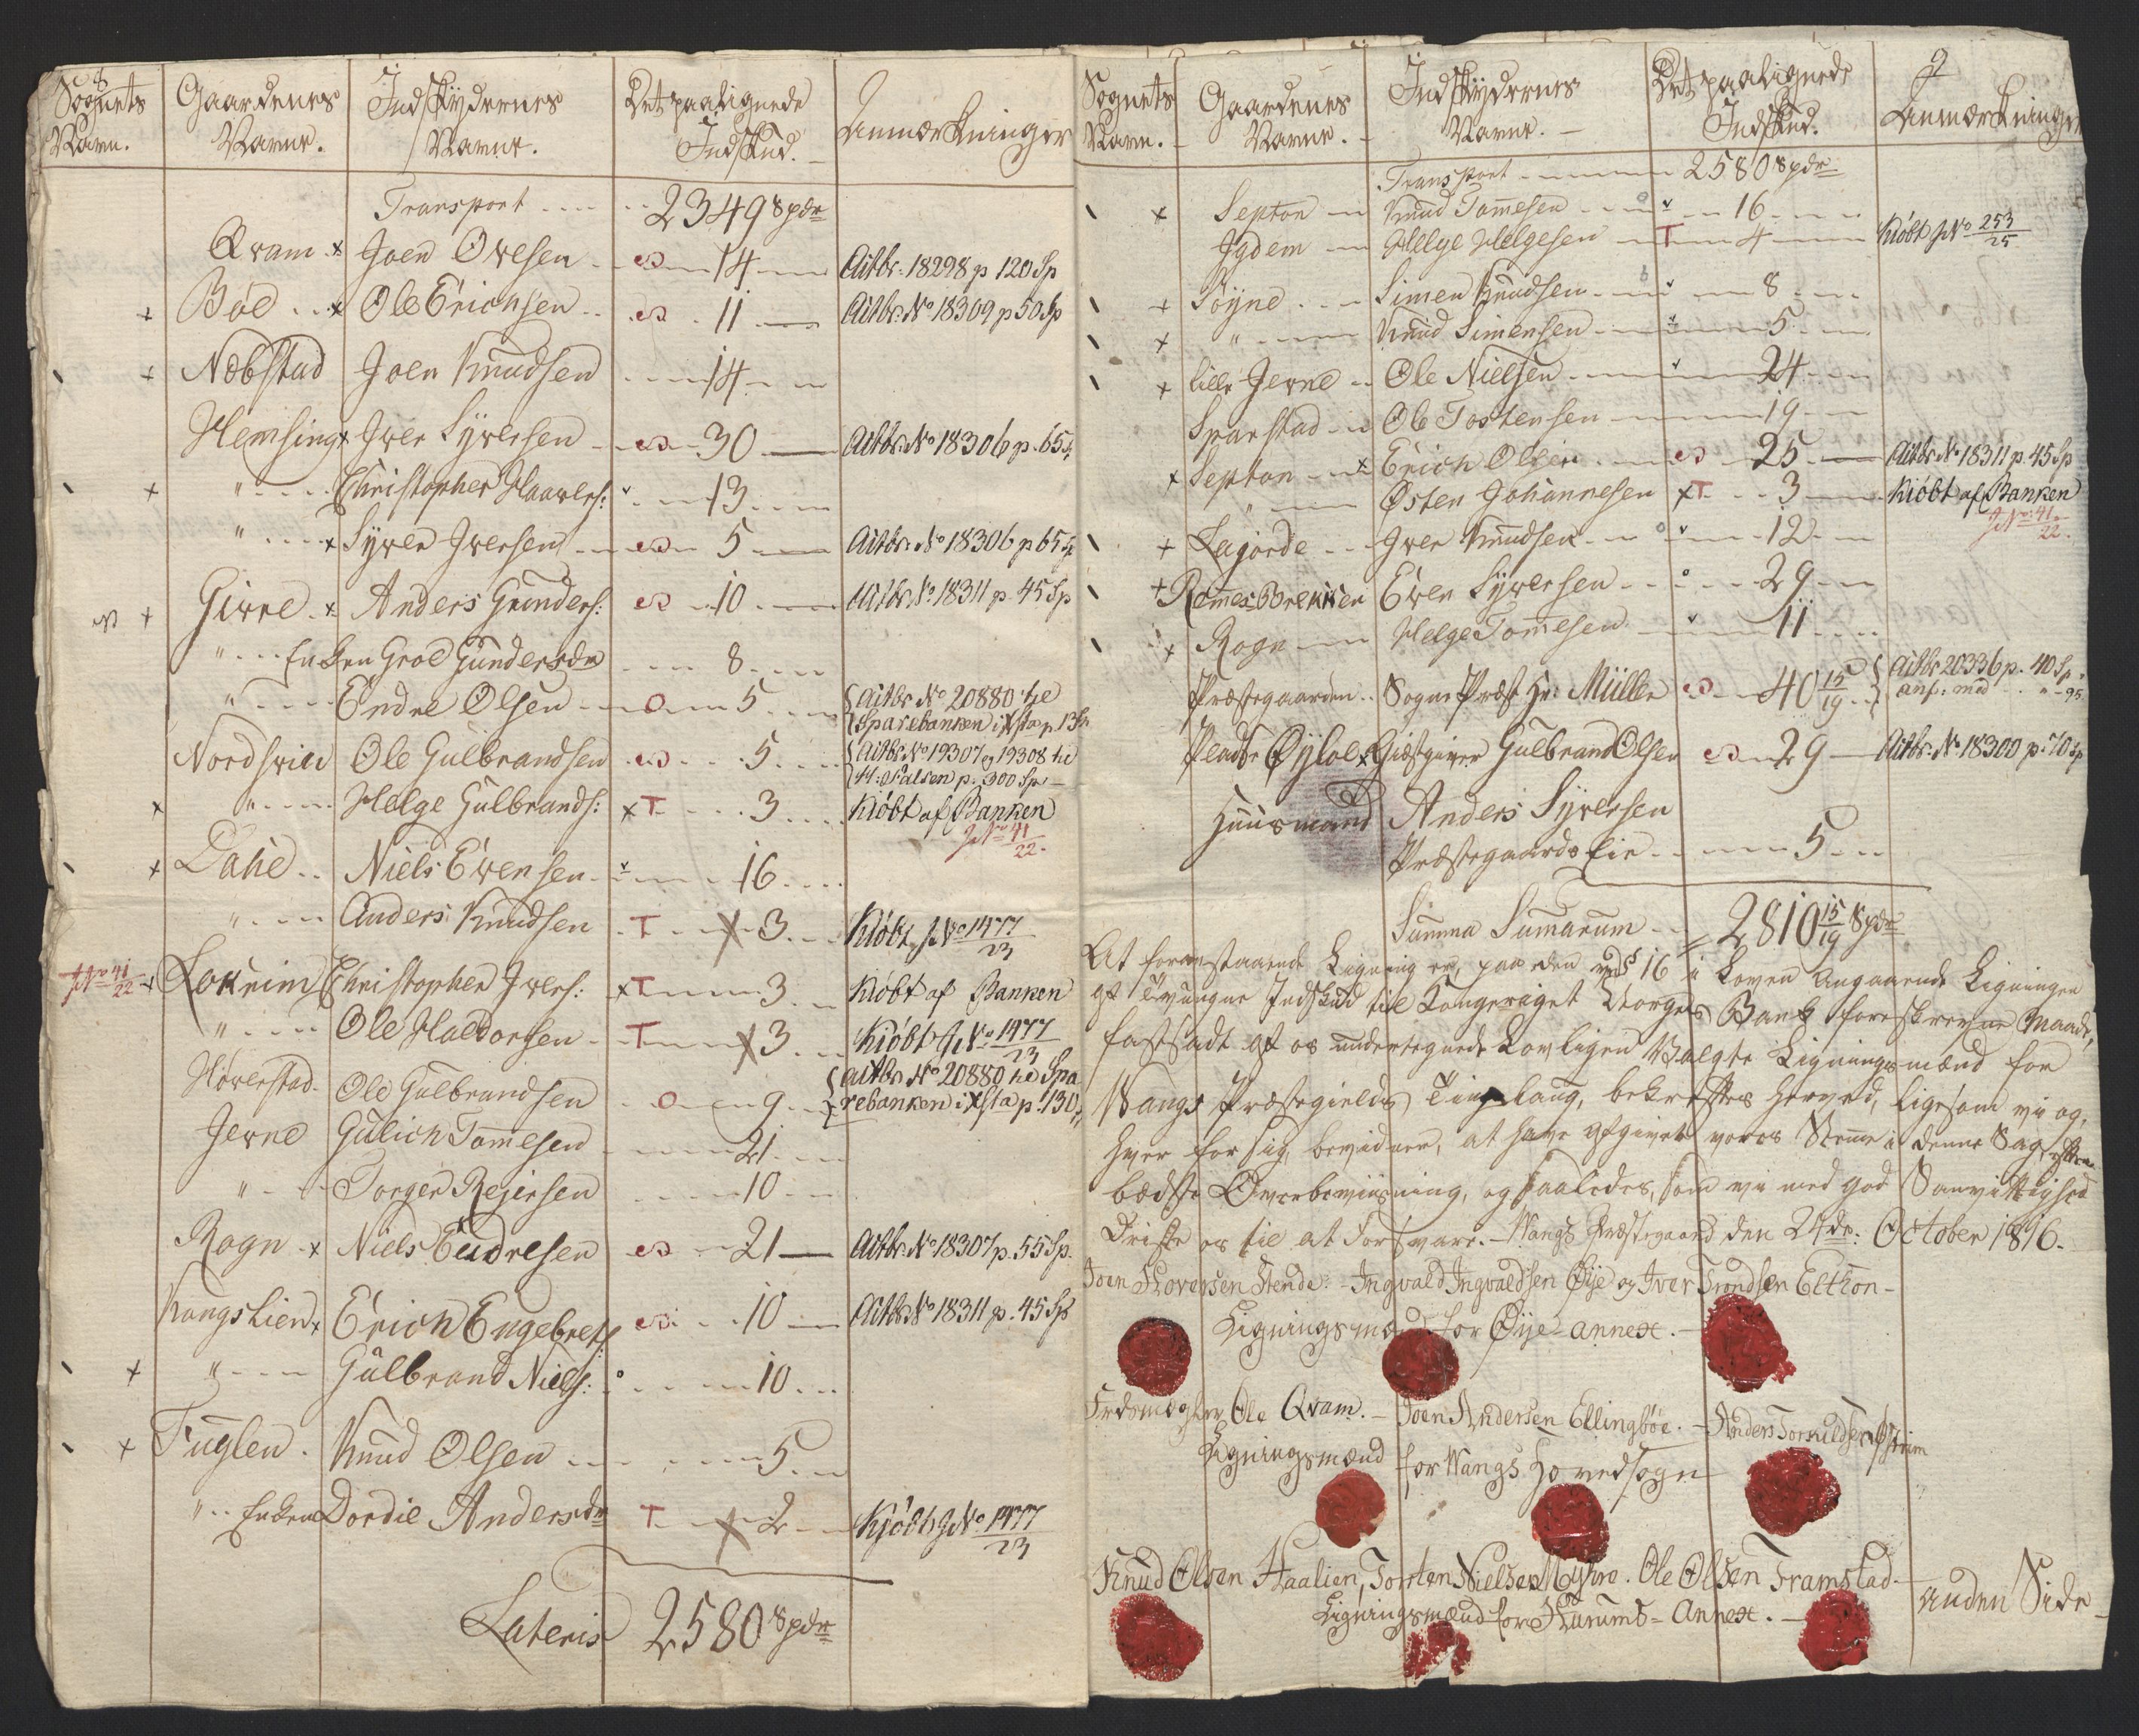 8
Sognets Navn. Gaardenes Navne. Indskydernes Navne. Det paalignede Indskud. Anmærkninger
Transport 2349 Spdr
Qvam x Joen Ovesen 14 Actbr: 18298 p 120 Sp
x Böe x Ole Erichsen 11 Actbr. No 18309 p 50 Sp
x Nebstad Joen Knudsen 14
Hemsing x Iver Syversen 30 Actbr. No 18306 p. 65 Sp
x " Christopher Haavers: 13
" x Syver Iversen 5 Actbr. No 18306 p 65 Sp
x Givre x Anders Gunders: 10 Actbr. No 18311 p. 45 Sp
" Enken Groe Gundersdr 8
" Endre Olsen O 5 Actbr No 20880 til
Sparebanken i Xsta p. 13 Sp
Nordsvien Ole Gulbrandsen 5 Actbr No 19307 og 19308 til
H. Falsen p. 300 Sp
x " Helge Gulbrands: x T 3 Kiöbt af Banken
JNo 41/22.
x Dahle Niels Evensen 16
" Anders Knudsen T x 3 Kiöbt JNo 1477/23
JNo 41/22 x Lokrim Christopher Ivers: x T 3 Kiöbt af Banken
" Ole Haldorsen T x 3 Kiöbt JNo 1477/23
Höverstad Ole Gulbrandsen O 9 Actbr No 20880 til Spa
rebanken i Xsta p. 130
Jevne Gulich Tommesen 21
" Torger Rejersen 10
Rogn x Niels Endresen 21 Actbr. No 18307 p. 55 Sp.
Kongslien x Erich Engebrets: 10 Actbr No 18311 p. 45 Sp
x " Gulbrand Niels: 10
x Fuglen Knud Olsen 5
" Enken Dordie Andersdr T x 2 Kjöbt JNo 1477/23
Lateris 2580 Spdr
9
Sognets Navn. Gaardenes Navne. Indskydernes Navne. Det paalignede Indskud. Anmærkninger
Transport 2580 Spdr
x Septon Knud Tommesen 16
Igdem Helge Helgesen T 4 Kiöbt JNo 253/25
x Söyne Simen Knudsen 8
x " Knud Simensen 5
x Lille Jevne Ole Nielsen 24
Sparstad Ole Tostensen 19
x Septon x Erich Olsen 25 Actbr No 18311 p. 45 Sp
" Østen Johannesen x T 3 Kiöbt af Banken
JNo: 41/22.
x Lajorde Iver Knudsen 12
x Rommesbrekken Even Syversen 29
x Rogn Helge Tommesen 11
Præstegaarden Sogne Præst Hr: Müller 40 15/19 Actbr 20336 p. 40 Sp
anf: med " 95
Pladse Øyloe x Giæstgiver Gulbrand Olsen 29 Actbr: No 18300 p. 70 Sp
Huusmand Anders Syversen
Præstegaards Eie 5
Summa Summarum 2810 15/19 Spdr
At foranstaaende Ligning er, paa den ved § 16 i Loven angaaende Ligningen
af tvungne Indskud til Kongeriget Norges Bank foreskrevne Maade,
fastsadt af os undertegnede Lovligen Valgte Ligningsmænd for
Wangs Præstegields Tinglaug, bekræftes herved, ligesom vi og,
hver for sig, bevidner, at have afgivet vores Stemme i denne Sag efter
bedste Overbeviisning, og saaledes, som vi med god Samvittighed
Driste os til at Forsvare. – Wangs Præstegaard den 24de: October 1816.
Joen Thoresen Stende: – Ingvald Ingvaldsen Øye og Iver Trondsen Elthon –
Ligningsmænd for Øye annex. –
Ole Qvam. – Joen Andersen Ellingböe. – Anders
Ligningsmænd for Wangs Hovedsogn
Knud Olsen Haalien, Torsten Nielsen Myhre. Ole Olsen Framstad –
Ligningsmænd for Hurums – Annex. –
anden Side